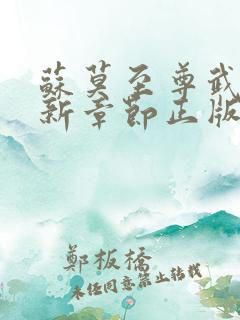 蘇莫至尊武
新章節正版
鄭板橋
未任同意禁止转载